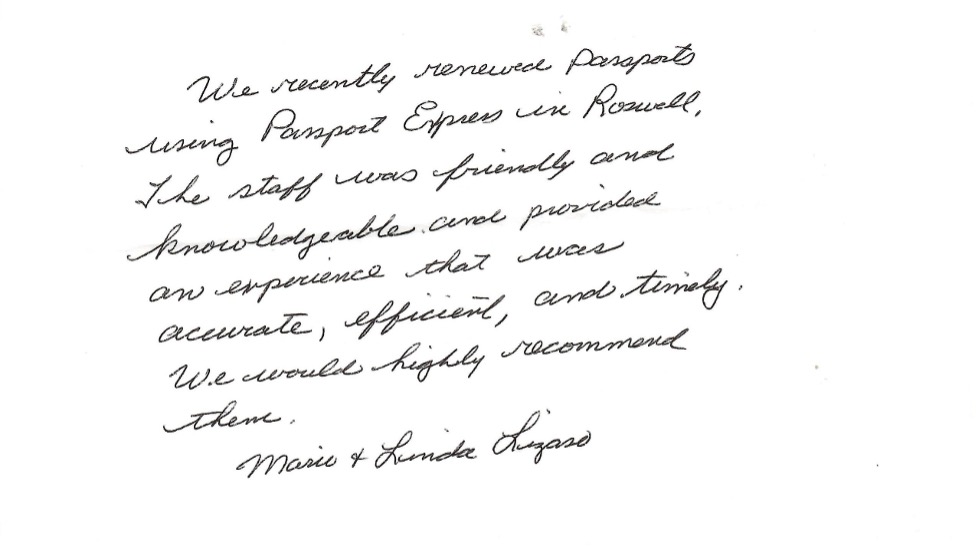 We recently renewed passports
using Passport Express in Roswell.
The staff was friendly and
knowledgeable and provided
an experience that was
accurate, efficient, and timely.
We would highly recommend
them.
Mario & Linda Lizaso